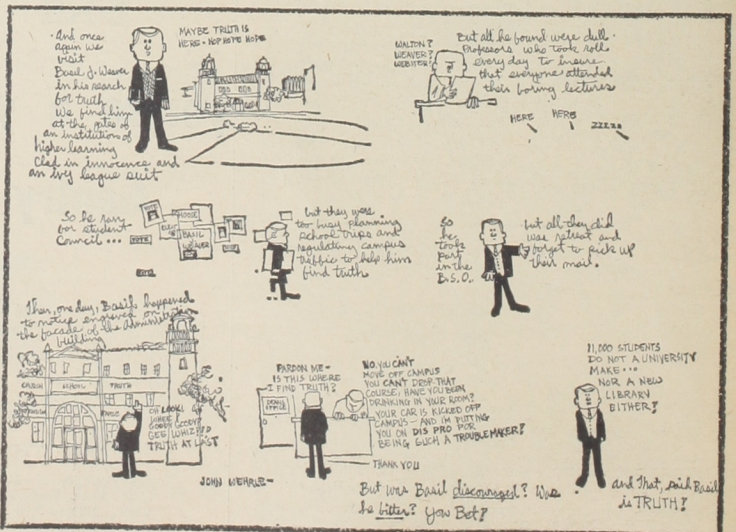 And once
again we
visit
Basil J. Weaver
in his search
for truth
We find him
at the gates of
an institution of
higher learning
Clad in innocence and
an ivy league suit
MAYBE TRUTH IS
HERE - HOP HOPE HOPE
WALTON?
WEAVER?
WEBSTER?
But all he found were dull
Professors who took roll
every day to insure
that everyone attended
their boring lectures
HERE HERE ZZZZZ
So he ran
for student
Council ...
VOTE
CHOOSE
BASIL
WEAVER
VOTE
but they were
too busy planning
school trips and
regulating campus
traffic to help him
find truth
So
he
took
part
in the
B.S.O.
but all they did
was retreat and
forget to pick up
their mail.
Then, one day, Basil happened
to notice engraved on
the facade of the Administration
building
TRUTH
OH LOOK!
WHEE!
GOODY GOODY!
GEE WHIZ!
TRUTH AT LAST
JOHN WEHRLE-
PARDON ME-
IS THIS WHERE
I FIND TRUTH?
DEANS
OFFICE
NO. YOU CAN'T
MOVE OFF CAMPUS
YOU CAN'T DROP THAT
COURSE. HAVE YOU BEEN
DRINKING IN YOUR ROOM?
YOUR CAR IS KICKED OFF
CAMPUS- AND I'M PUTTING
YOU ON DIS PRO FOR
BEING SUCH A TROUBLEMAKER!
THANK YOU
But was Basil discouraged? Was
he bitter? You Bet!
11,000 STUDENTS
DO NOT A UNIVERSITY
MAKE...
NOR A NEW
LIBRARY
EITHER!
and That, said Basil
is TRUTH!